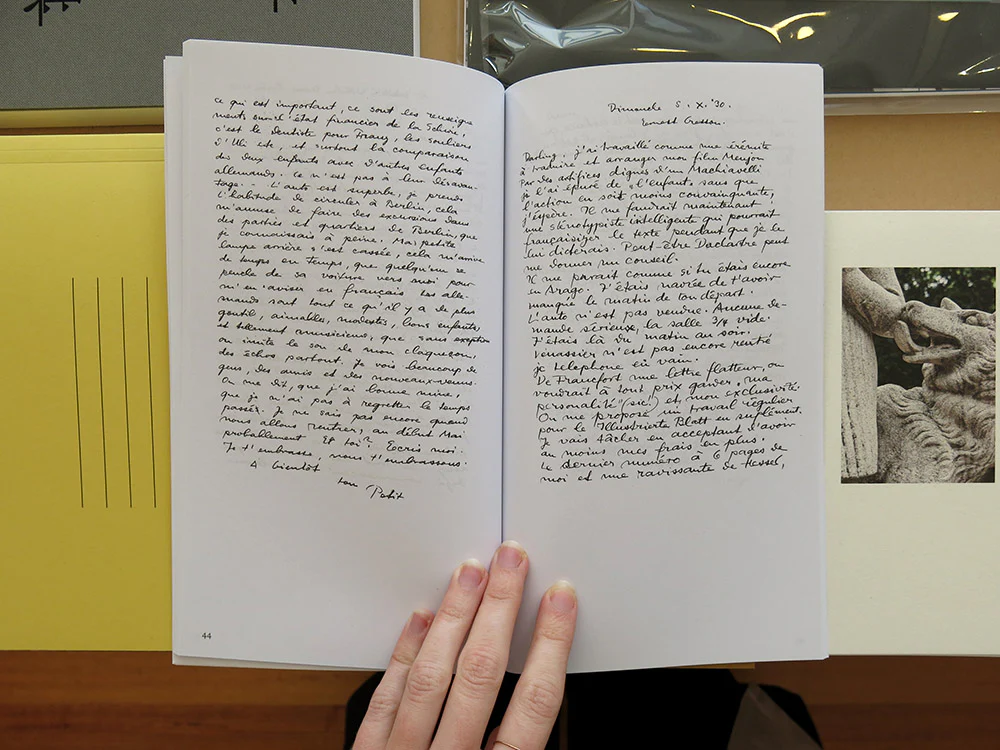 ce qui est important, ce sont les renseigne
ments sur l'état financier de la
c'est le dentiste pour Franz, les souliers
d'Uli etc, et surtout la comparaison
des deux enfants avec d'autres enfants
allemands. Ce n'est pas à leur désavan-
tage. - L'auto est superbe, je prends
l'habitude de circuler à Berlin, cela
m'amuse de faire des excursions dans
des parties et quartiers de Berlin, que
je connaissais à peine. Ma petite
lampe arrière s'est cassée, cela m'arrive
de temps en temps, que quelqu'un se
penche de sa voiture vers moi pour
m'en aviser en français. Les alle-
mands sont tout ce qu'il y a de plus
gentil, aimables, modestes, bons enfants,
et tellement musiciens, que sans exception
on imite le son de mon claqueson,
des échos partout. Je vois beaucoup de
gens, des amis et des nouveaux-venus.
On me dit, que j'ai bonne mine,
que je n'ai pas à regretter le temps
passé. Je ne sais pas encore quand
nous allons rentrer, au début Mai
probablement. Et toi? Ecris moi.
Je t'embrasse, nous t'embrassons.
A bientôt
ton Petit
44
Dimanche 5. X. '30.
Ernest Cresson.
Darling, j'ai travaillé comme une érémite
à traduire et arranger mon film Menjou
Par des artifices dignes d'un Machiavelli
je l'ai épuré de "l'enfant" sans que
l'action en soit moins convainquante,
j'espère. Il me faudrait maintenant
une sténotypiste intelligente qui pourrait
françaiser le texte pendant que je le
lui dicterais. Peut-être Daclastre peut
me donner un conseil.
Il me parait comme si tu étais encore
en Arago. J'étais navrée de t'avoir
manqué le matin de ton départ.
L'auto n'est pas vendue. Aucune de-
mande sérieuse, la salle 3/4 vide.
J'étais là du matin au soir.
Venassier n'est pas encore rentré
je telephone en vain.
De Francfort une lettre flatteur, on
voudrait à tout prix garder "ma
personalité" (sic!) et mon exclusivité.
On me propose un travail régulier
pour le Illustrierte Blatt en suplément.
Je vais tâcher en acceptant d'avoir
au moins mes frais en plus.
Le dernier numéro à 6 pages de
moi est une ravissante de Hessel,